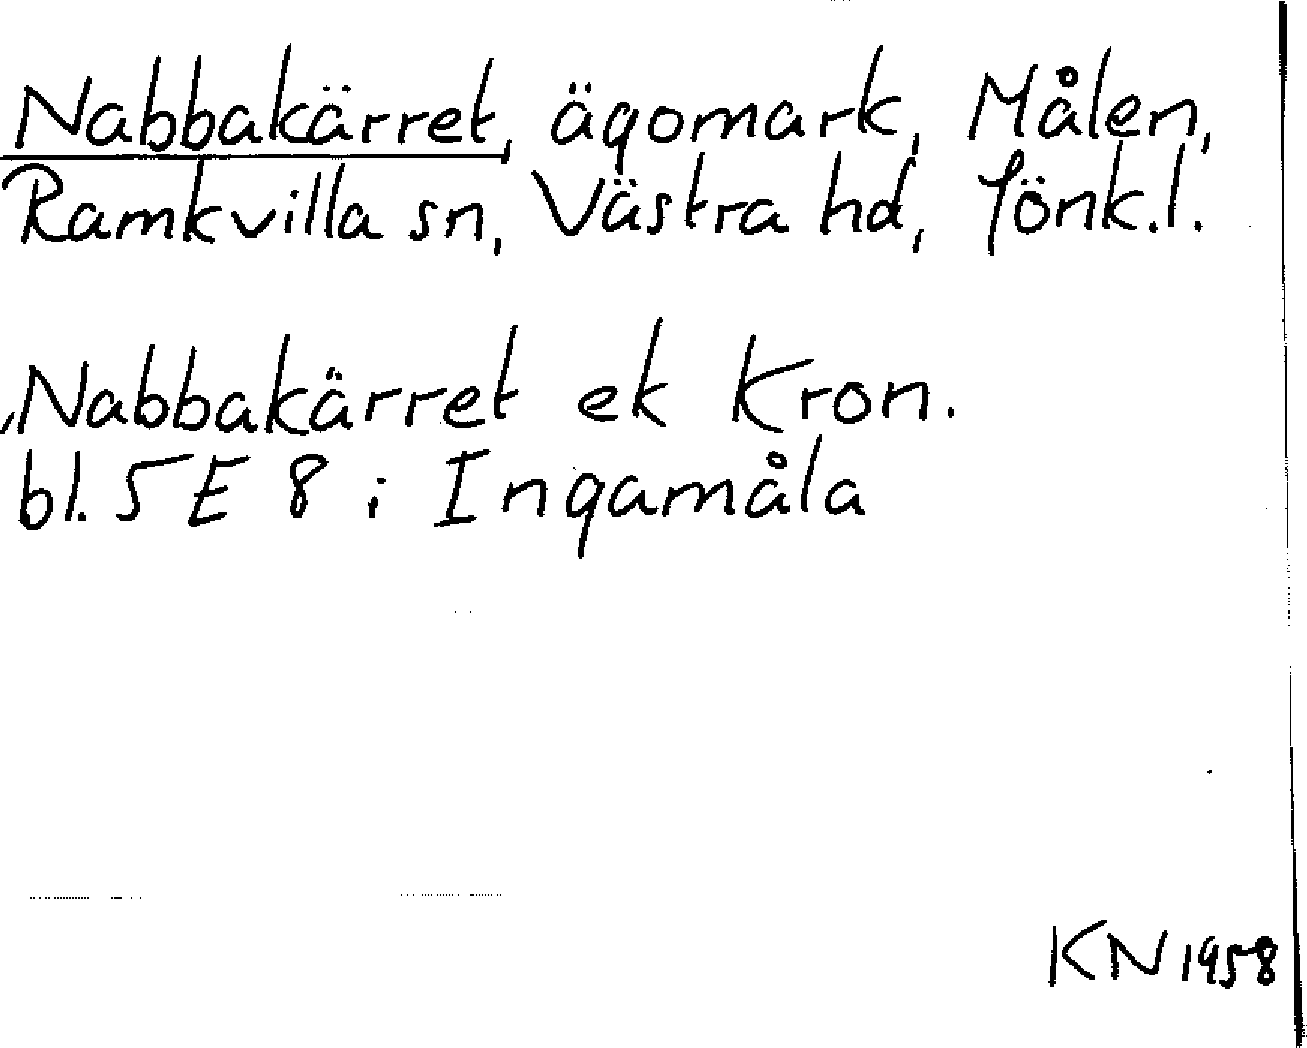 Nabbakärret, ägomark, Målen,
Ramkvilla sn, Västra hd, Jönk.l.
Nabbakärret ek Kron.
bl. 5 E 8 i Ingamåla
KN 1958